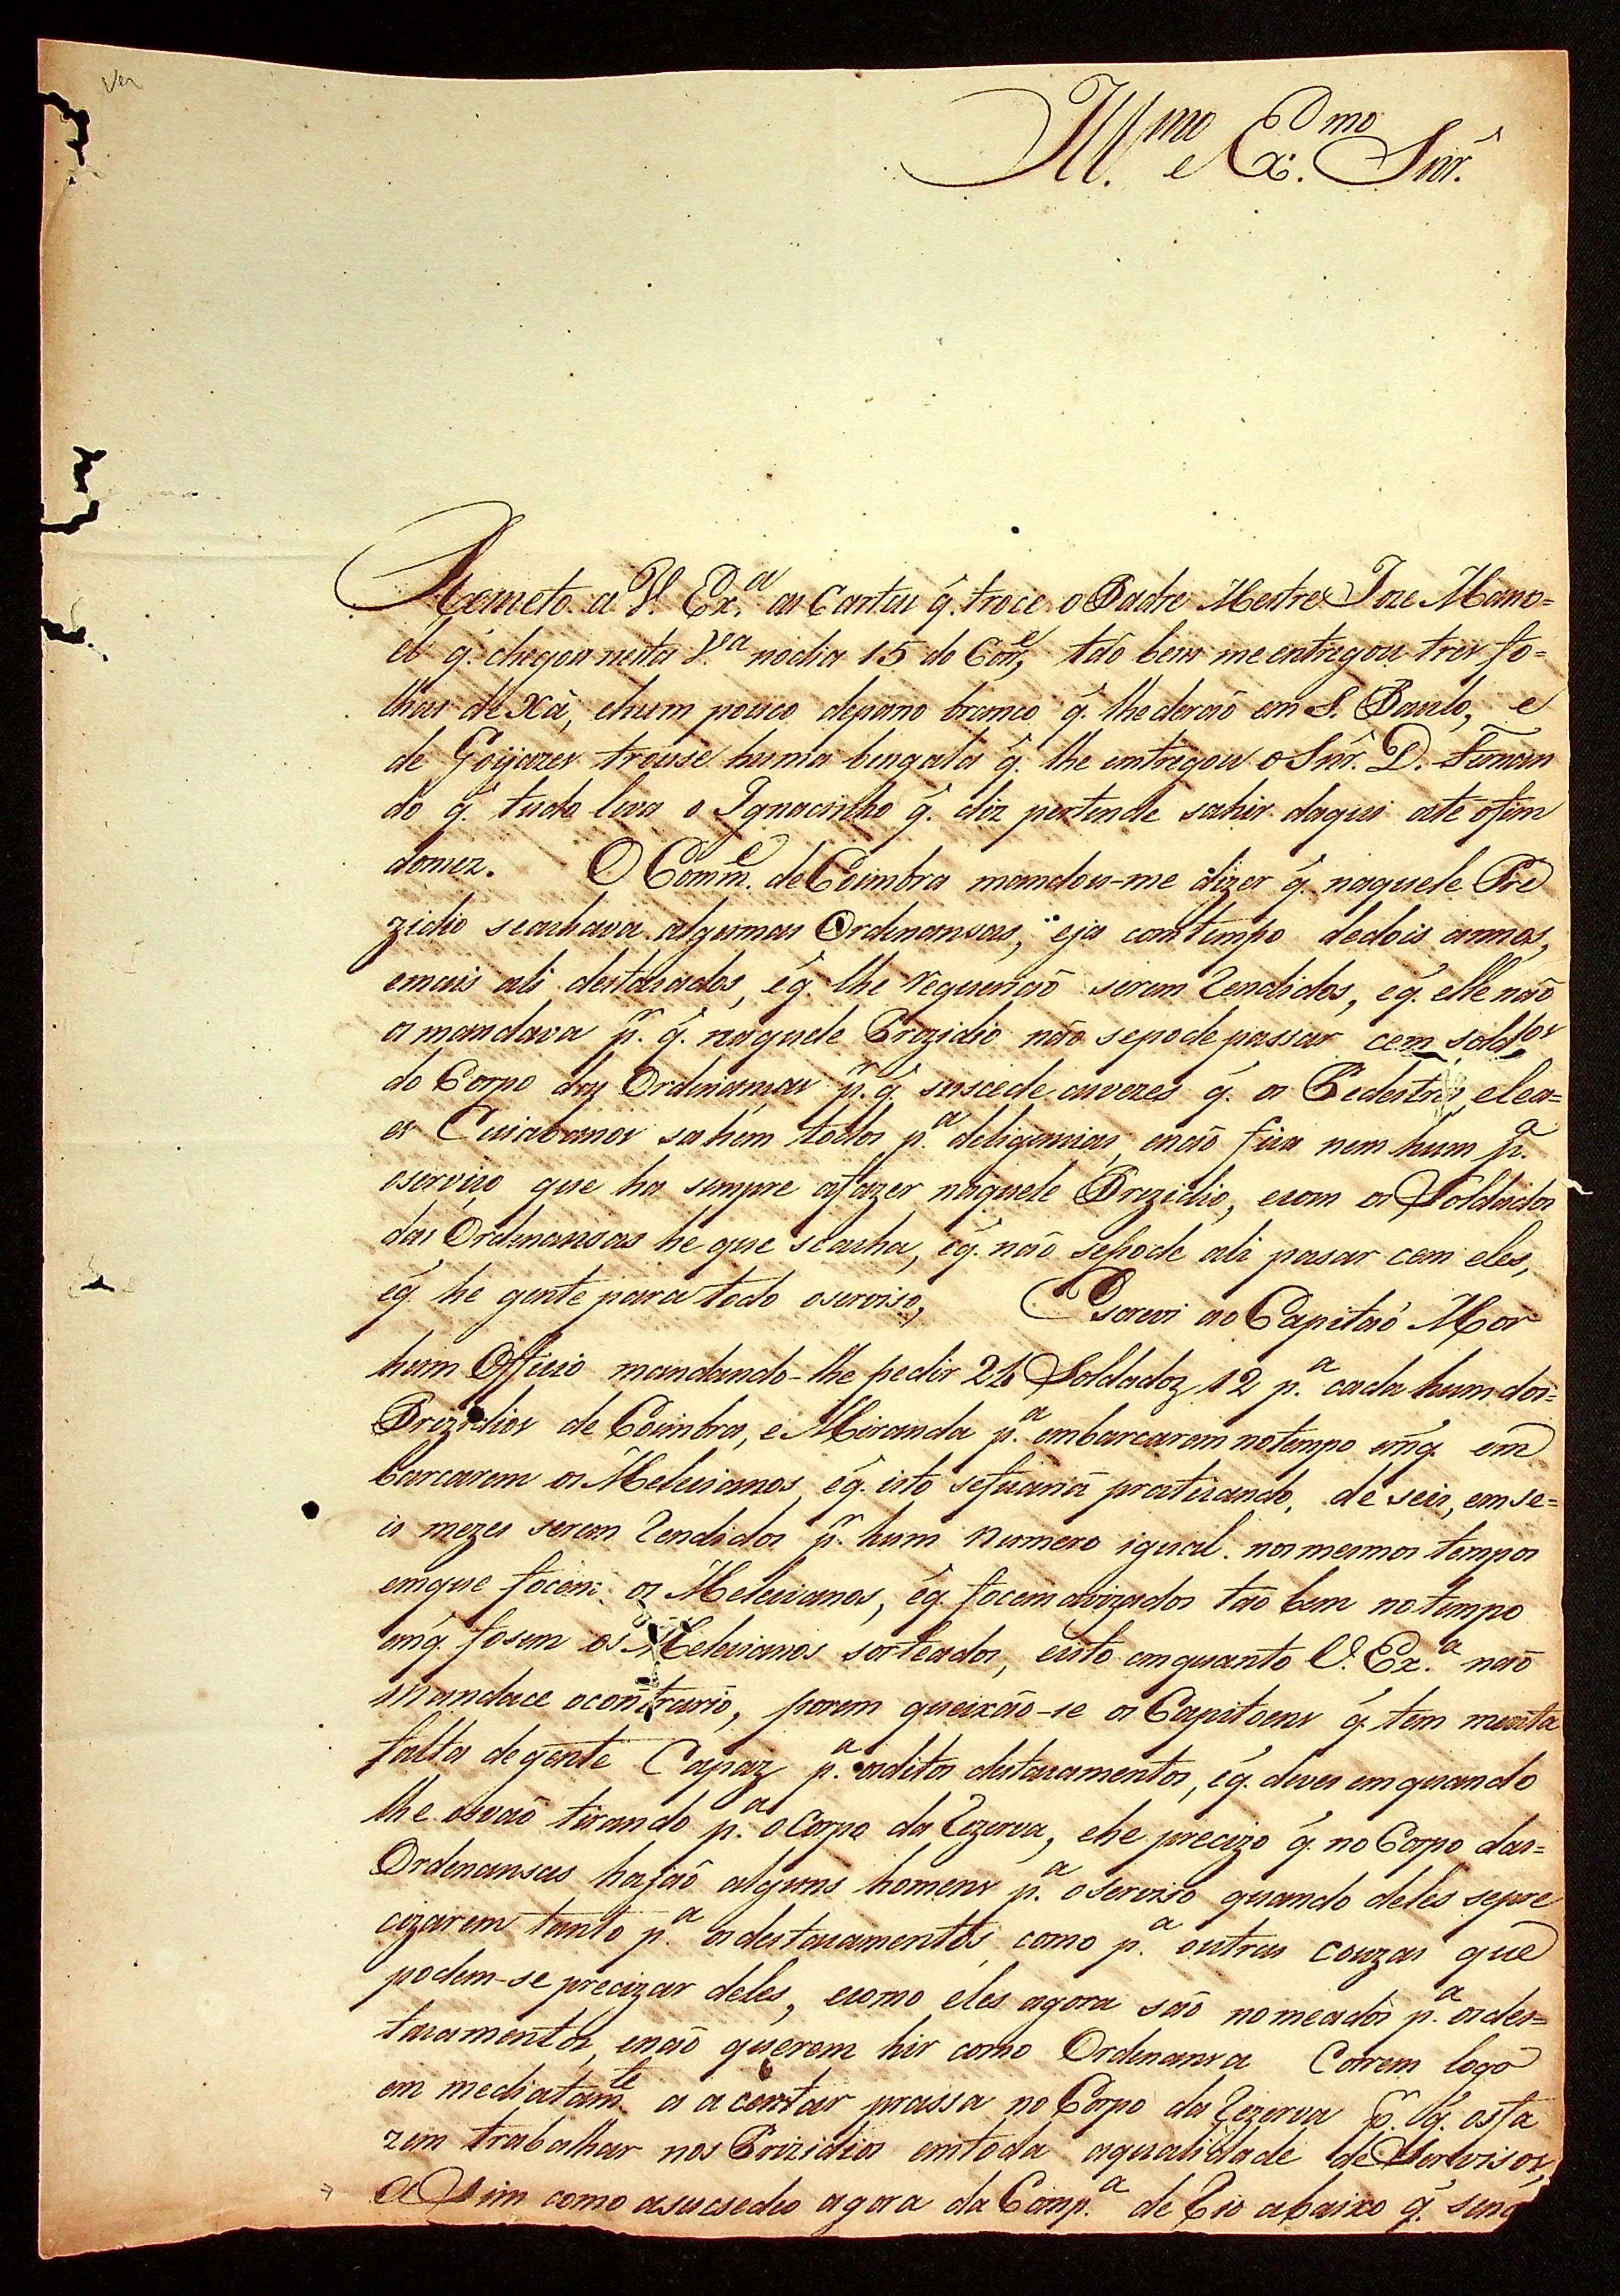 Ver
Ill.mo e Ex.mo Snr.
Remeto a V. Ex.a as Cartas q. troce o Padre Mestre Joze Mano=
el q. chegou nesta V.a nodia 15 do Corr.e, tão bem me entregou tres fo=
lhas de Xá, ehum pouco depano branco q. lhe derão em S. Paulo, e
de Goyazes trouse huma bengala q. lhe entregou o Snr. D. Fernan
do q. tudo leva o Ignacinho q. diz pertende sahir daqui ate ofim
domez. O Comm.e de Coimbra mandou-me dizer q. naquele Pre
zidio seachava algumas Ordenansas, eja com tempo dedois annos,
emais ali destacados, éq. lhe requerião serem Rendidos, eq. elle não
os mandava p.r q. naquele Prezidio não sepode passar cem sold.os
do Corpo das Ordenansas p.r q. suscede asvezes q. os Pedestres, elea=
es Cuiabanos sahem todos p.a deligencias, enão fica nem hum p.a
oserviso que ha sempre afazer naquele Prezidio, ecom os Soldados
das Ordenansas he que seacha, éq. não sepode ali pasar cem eles,
éq. he gente para todo oserviso, Escrevi ao Capitão Mor
hum Officio mandando-lhe pedir 24 Soldados 12 p.a cada hum dos=
Prezidios de Coimbra, e Miranda p.a embarcarem notempo emq. em
barcarem os Melicianos, éq. isto seficaria praticando, de seis, em se=
is mezes serem Rendidos p.r hum numero igual nos mesmos tempos
emque focem os Melicianos, éq. focem avizados tão bem no tempo
emq. fosem os Melicianos sorteados, eisto emquanto V. Ex.a não
mandace ocontrario, porem queixão-se os Capitoens q. tem muita
falta degente Capaz p.a osditos destacamentos, éq. devez emquando
lhe osvão tirando p.a o Corpo da Rezerva, ehe precizo q. no Corpo das=
Ordenansas hajão alguns homens p.a oserviso quando deles sepre
cizarem tanto p.a osdestacamentos, como p.a outras couzas que
podem-se precizar deles, ecomo eles agora são nomeados p.a osdes=
tacamentos, enão querem hir como Ordenansa Correm logo
em mediatam.te a a centar prassa no Corpo da Rezerva p.r q. osfa
zem trabalhar nos Prizidios emtoda aqualidade de Servisos,
aSim como asucsedeo agora da Comp.a de Rio abaixo q.